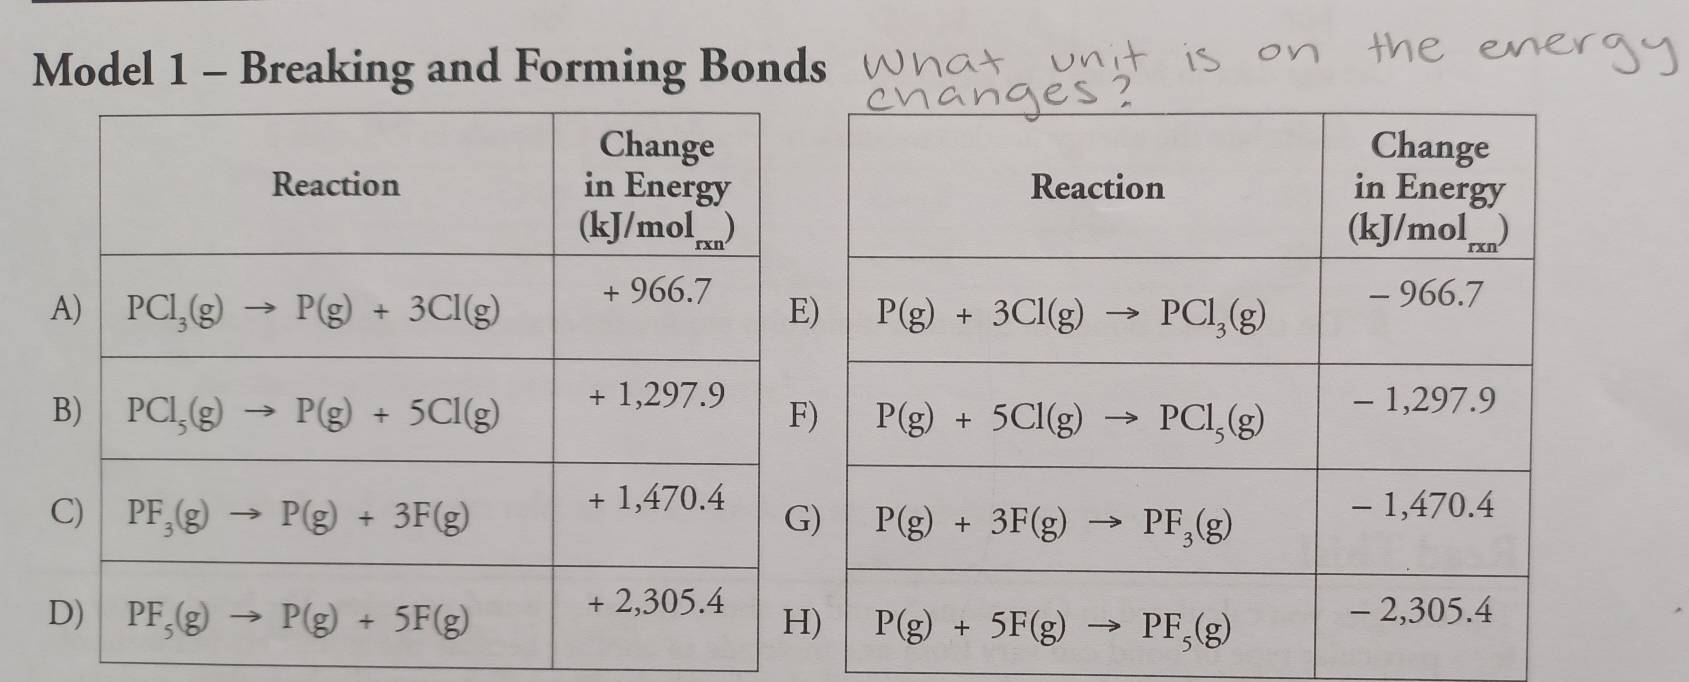 Model 1 – Breaking and Forming Bonds What unit is on the energy
changes?
Reaction
Change
in Energy
(kJ/mol_rxn)
A) PCl₃(g) → P(g) + 3Cl(g) + 966.7
B) PCl₅(g) → P(g) + 5Cl(g) + 1,297.9
C) PF₃(g) → P(g) + 3F(g) + 1,470.4
D) PF₅(g) → P(g) + 5F(g) + 2,305.4
Reaction
Change
in Energy
(kJ/mol_rxn)
E) P(g) + 3Cl(g) → PCl₃(g) – 966.7
F) P(g) + 5Cl(g) → PCl₅(g) – 1,297.9
G) P(g) + 3F(g) → PF₃(g) – 1,470.4
H) P(g) + 5F(g) → PF₅(g) – 2,305.4